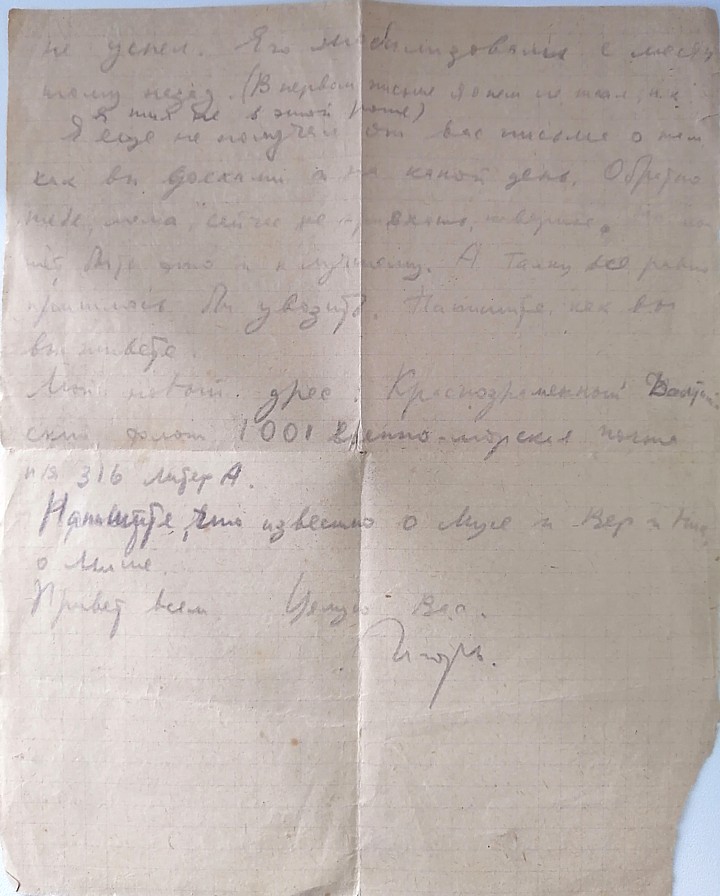 не успел. Его мобилизовали с месяц
тому назад. (В первом письме я о нем не
Я еще не получал от вас письма о нем
как вы доехали и на какой день. Обратно
тебе, мама, сейчас не
это и к лучшему. А Талку все равно
пришлось бы увозить. Напишите, как вы
вы живете.
Мой новый адрес: Краснознаменный Балтий
ский флот 1001 Военно-морская почта
п/я 316 литер А.
Напишите, что известно о Мусе и Вер и
о Мише.
Привет всем. Целую Вас.
Игорь.